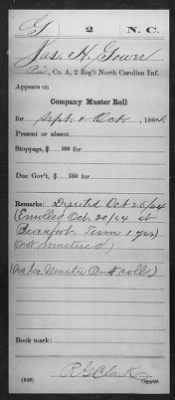 G 2 N.C.
Jas. H. Gown
Pvt, Co. A, 2 Reg't North Carolina Inf.
Appears on
Company Muster Roll
for Sept. & Oct, 1864.
Present or absent.
Stoppage, $ 100 for
Due Gov't, $ 100 for
Remarks: Deserted Oct 25/64
(Enrolled Oct. 20/64 at
Beaufort. Term 1 yrs)
(not mustered)
(As per Muster Out rolls)
Book mark:
R G Clark
(358) Copyist.